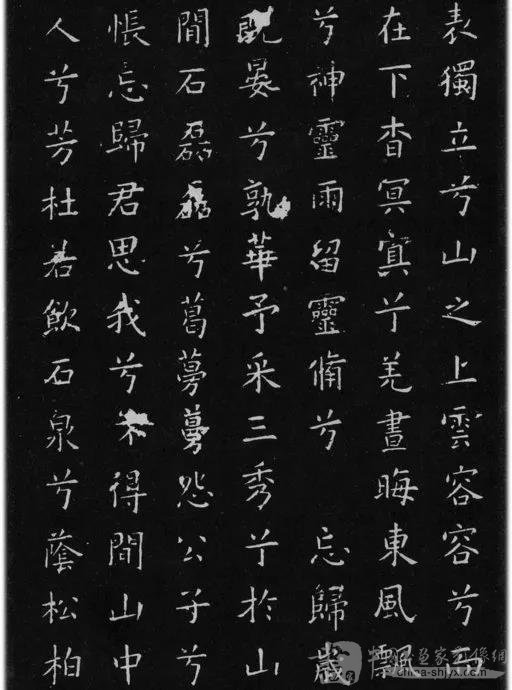 表獨立兮山之上雲容容兮而
在下杳冥冥兮羌晝晦東風飄
兮神靈雨留靈脩兮 忘歸歲
既晏兮孰華予采三秀兮於山
間石磊磊兮葛蔓蔓怨公子兮
悵忘歸君思我兮不得間山中
人兮芳杜若飲石泉兮蔭松柏